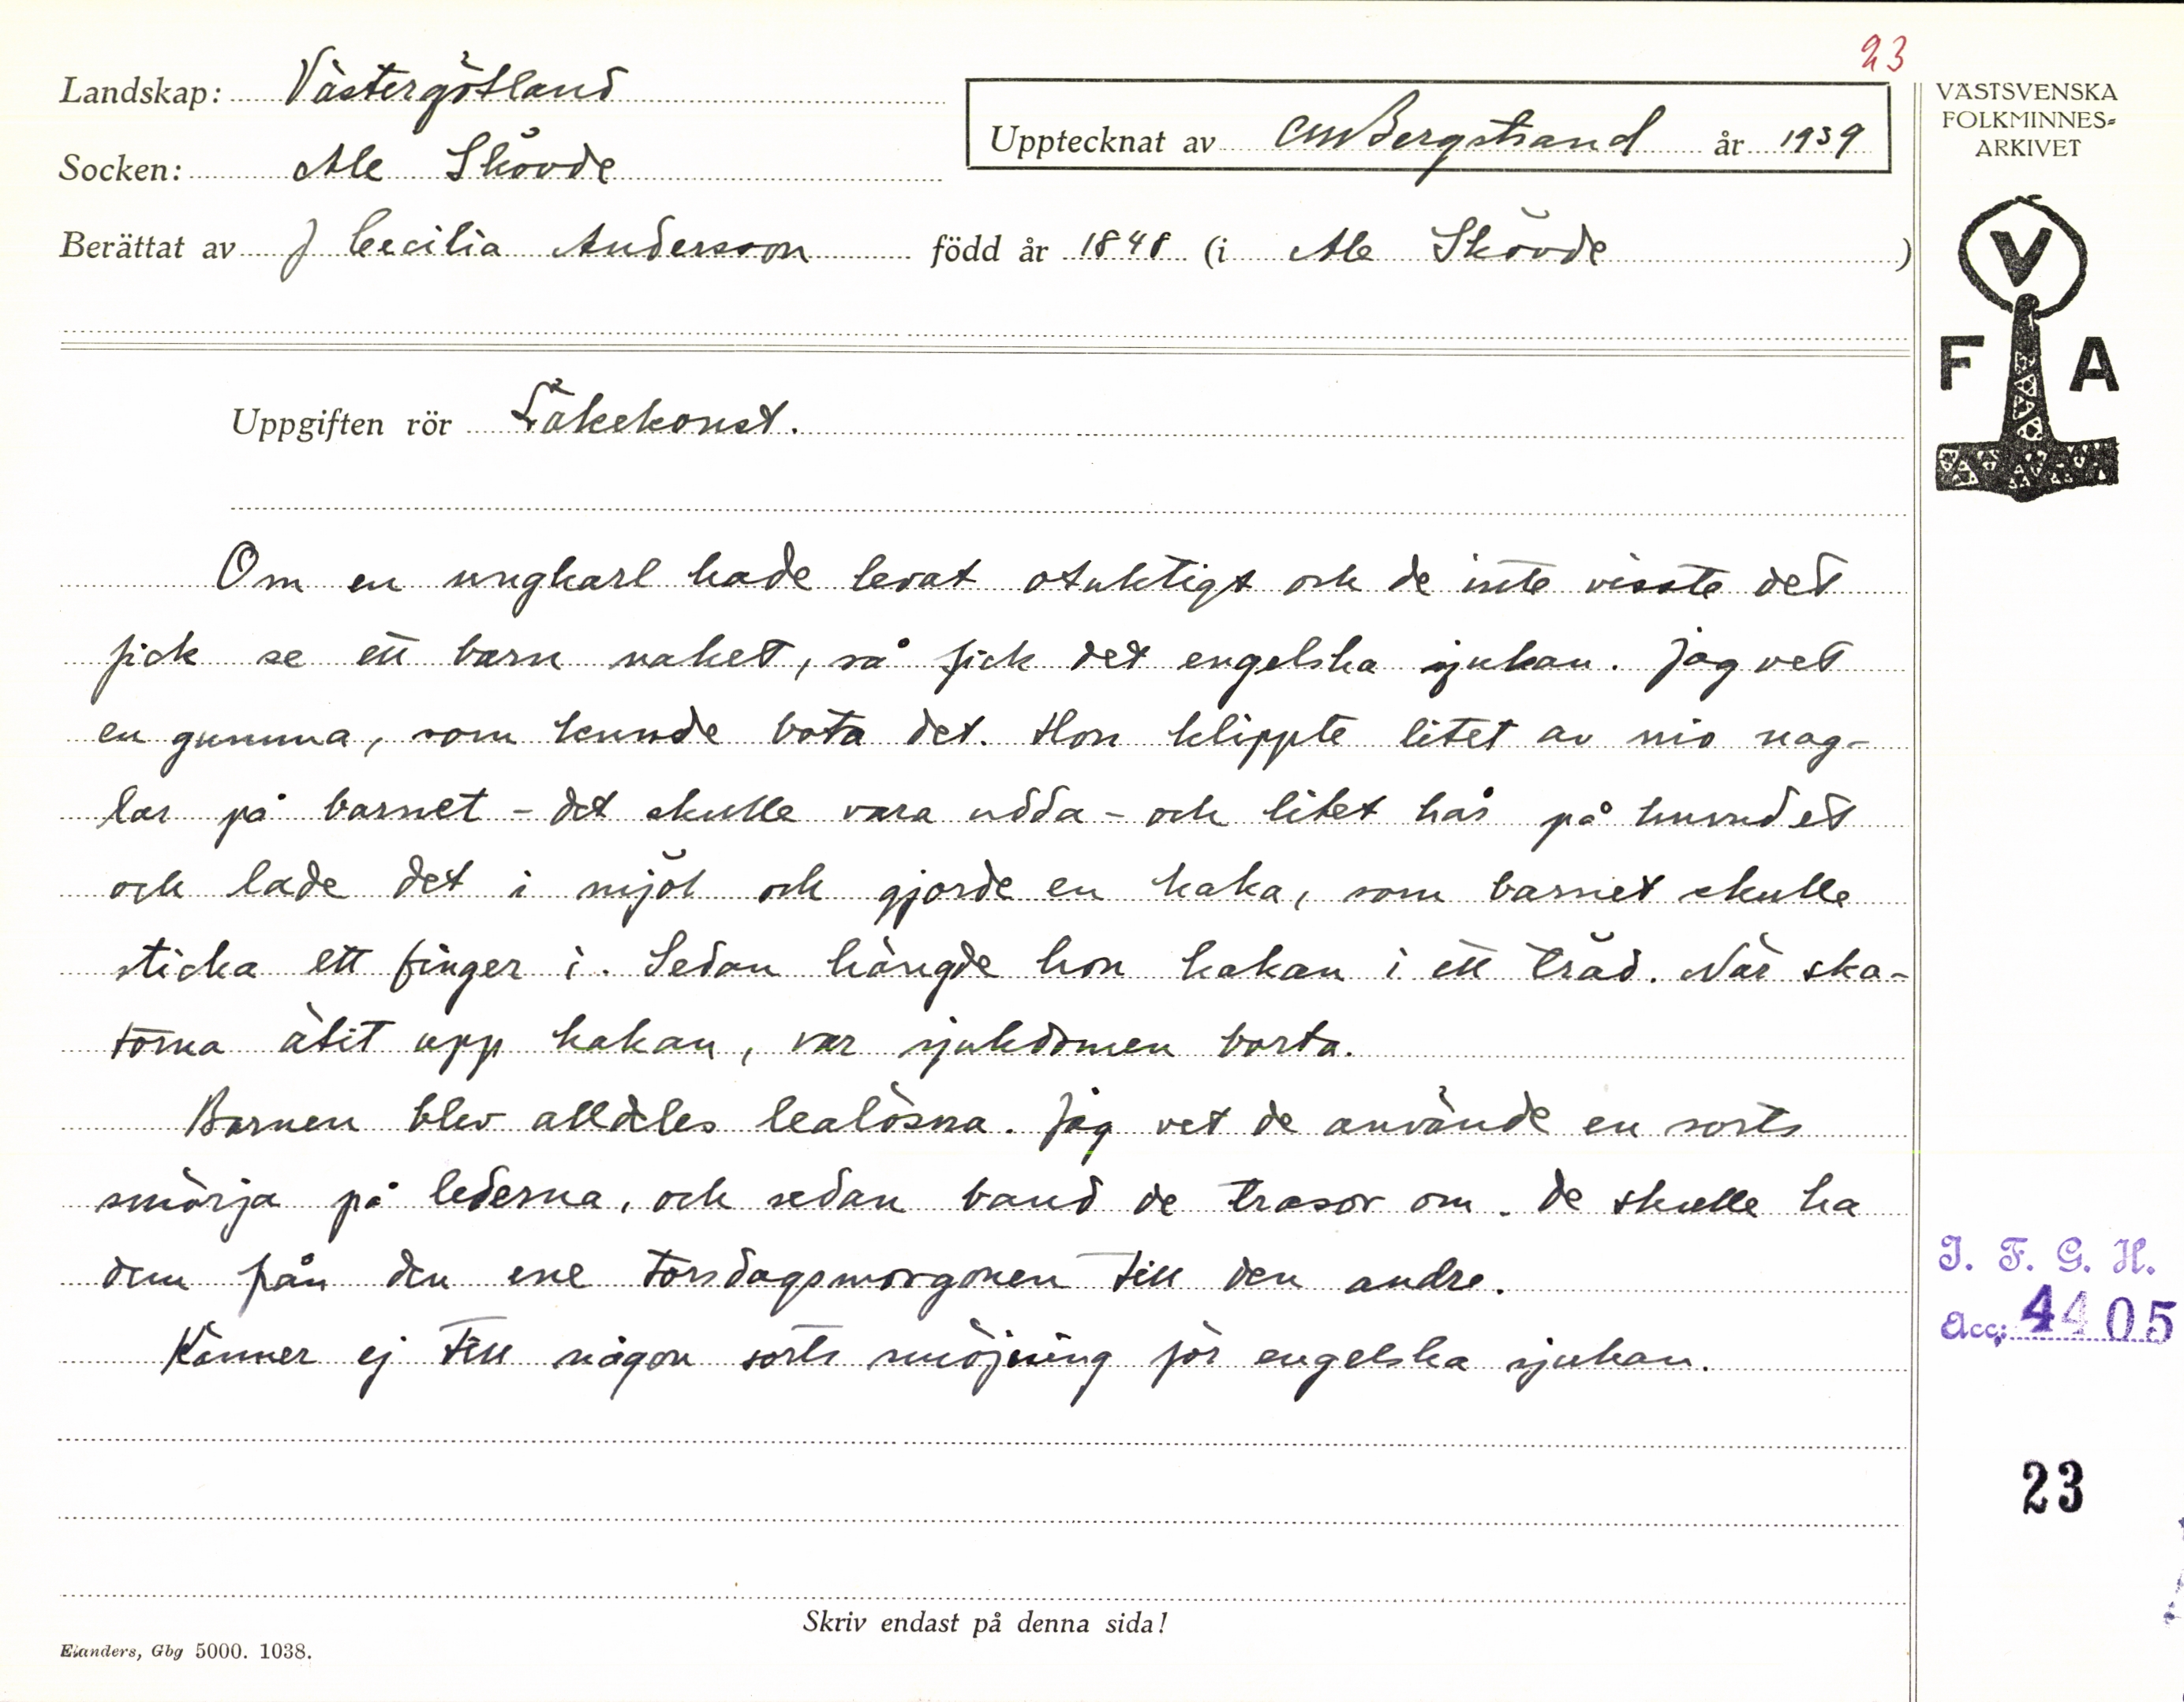 23
Landskap: Västergötland
VÄSTSVENSKA
FOLKMINNES-
ARKIVET
Upptecknat av CMBergstrand år 1939
Socken: Ale Skövde
Berättat av J Cecilia Andersson född år 1848 (i Ale Skövde )
V
F A
Uppgiften rör Läkekonst.
Om en ungkarl hade levat otuktigt och de inte visste det
fick se ett barn naket, så fick det engelska sjukan. Jag vet
en gumma, som kunde bota det. Hon klippte litet av nio nag-
lar på barnet - det skulle vara udda - och litet hår på huvudet
och lade det i mjöl och gjorde en kaka, som barnet skulle
sticka ett finger i. Sedan hängde hon kakan i ett träd. När ska-
torna ätit upp kakan, var sjukdomen borta.
Barnen blev alldeles lealösna. Jag vet de använde en sorts
smörja på lederna, och sedan band de trasor om. De skulle ha
dem från den ene torsdagsmorgonen till den andre.
Känner ej till någon sorts smöjning för engelska sjukan.
I. F. G. H.
Acc: 4405
23
Skriv endast på denna sida!
Elanders, Gbg 5000. 1038.